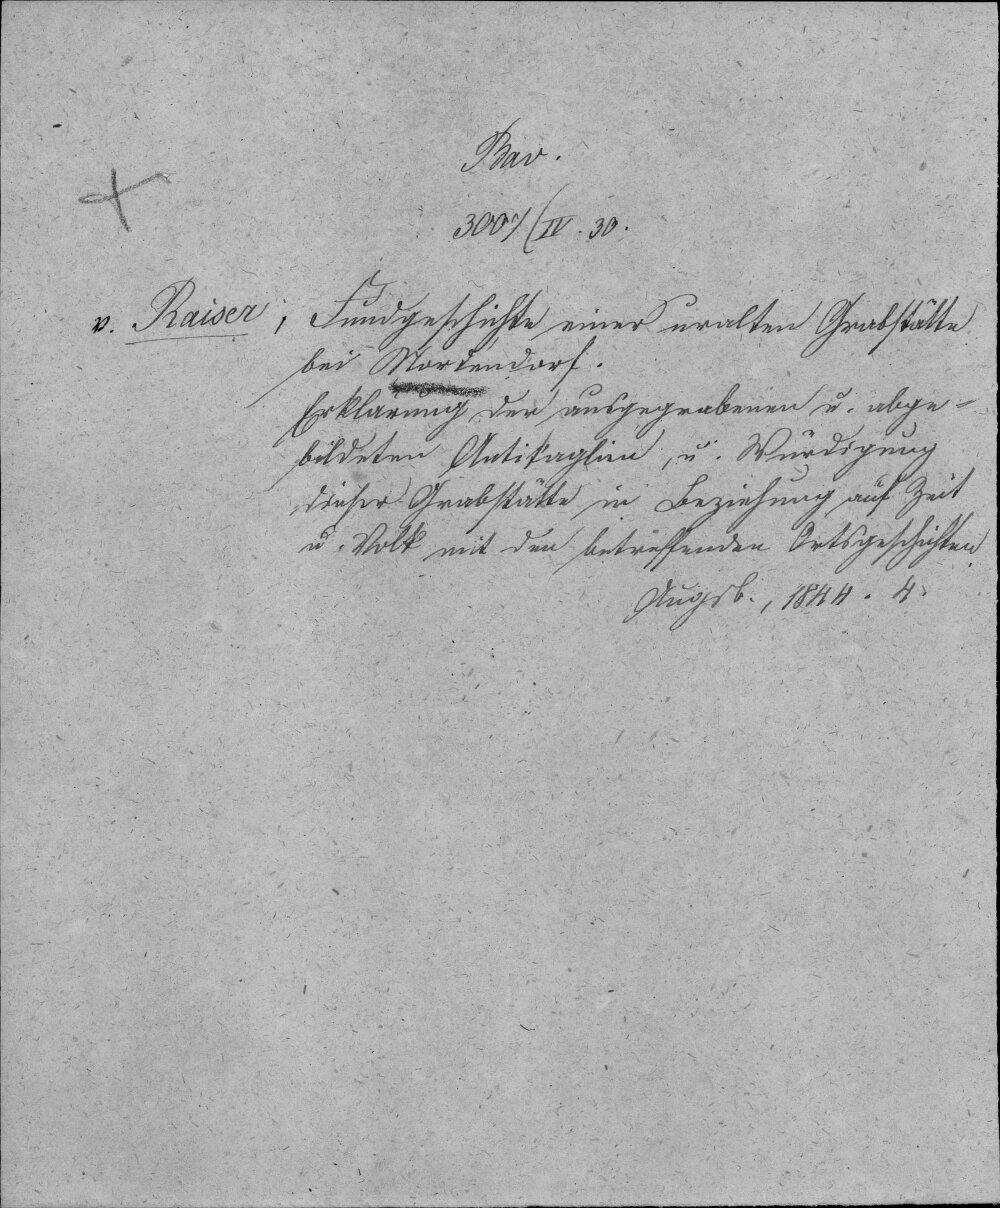 Bav.
3007/IV. 30.
v. Raiser, Fundgeschichte einer uralten Grabstätte
bei Nordendorf.
Erklärung der ausgegrabenen u. abge-
bildeten Antikaglien, u. Würdigung
dieser Grabstätte in Beziehung auf Zeit
u. Volk mit den betreffenden Ortsgeschichten
Augsb., 1844. 4.